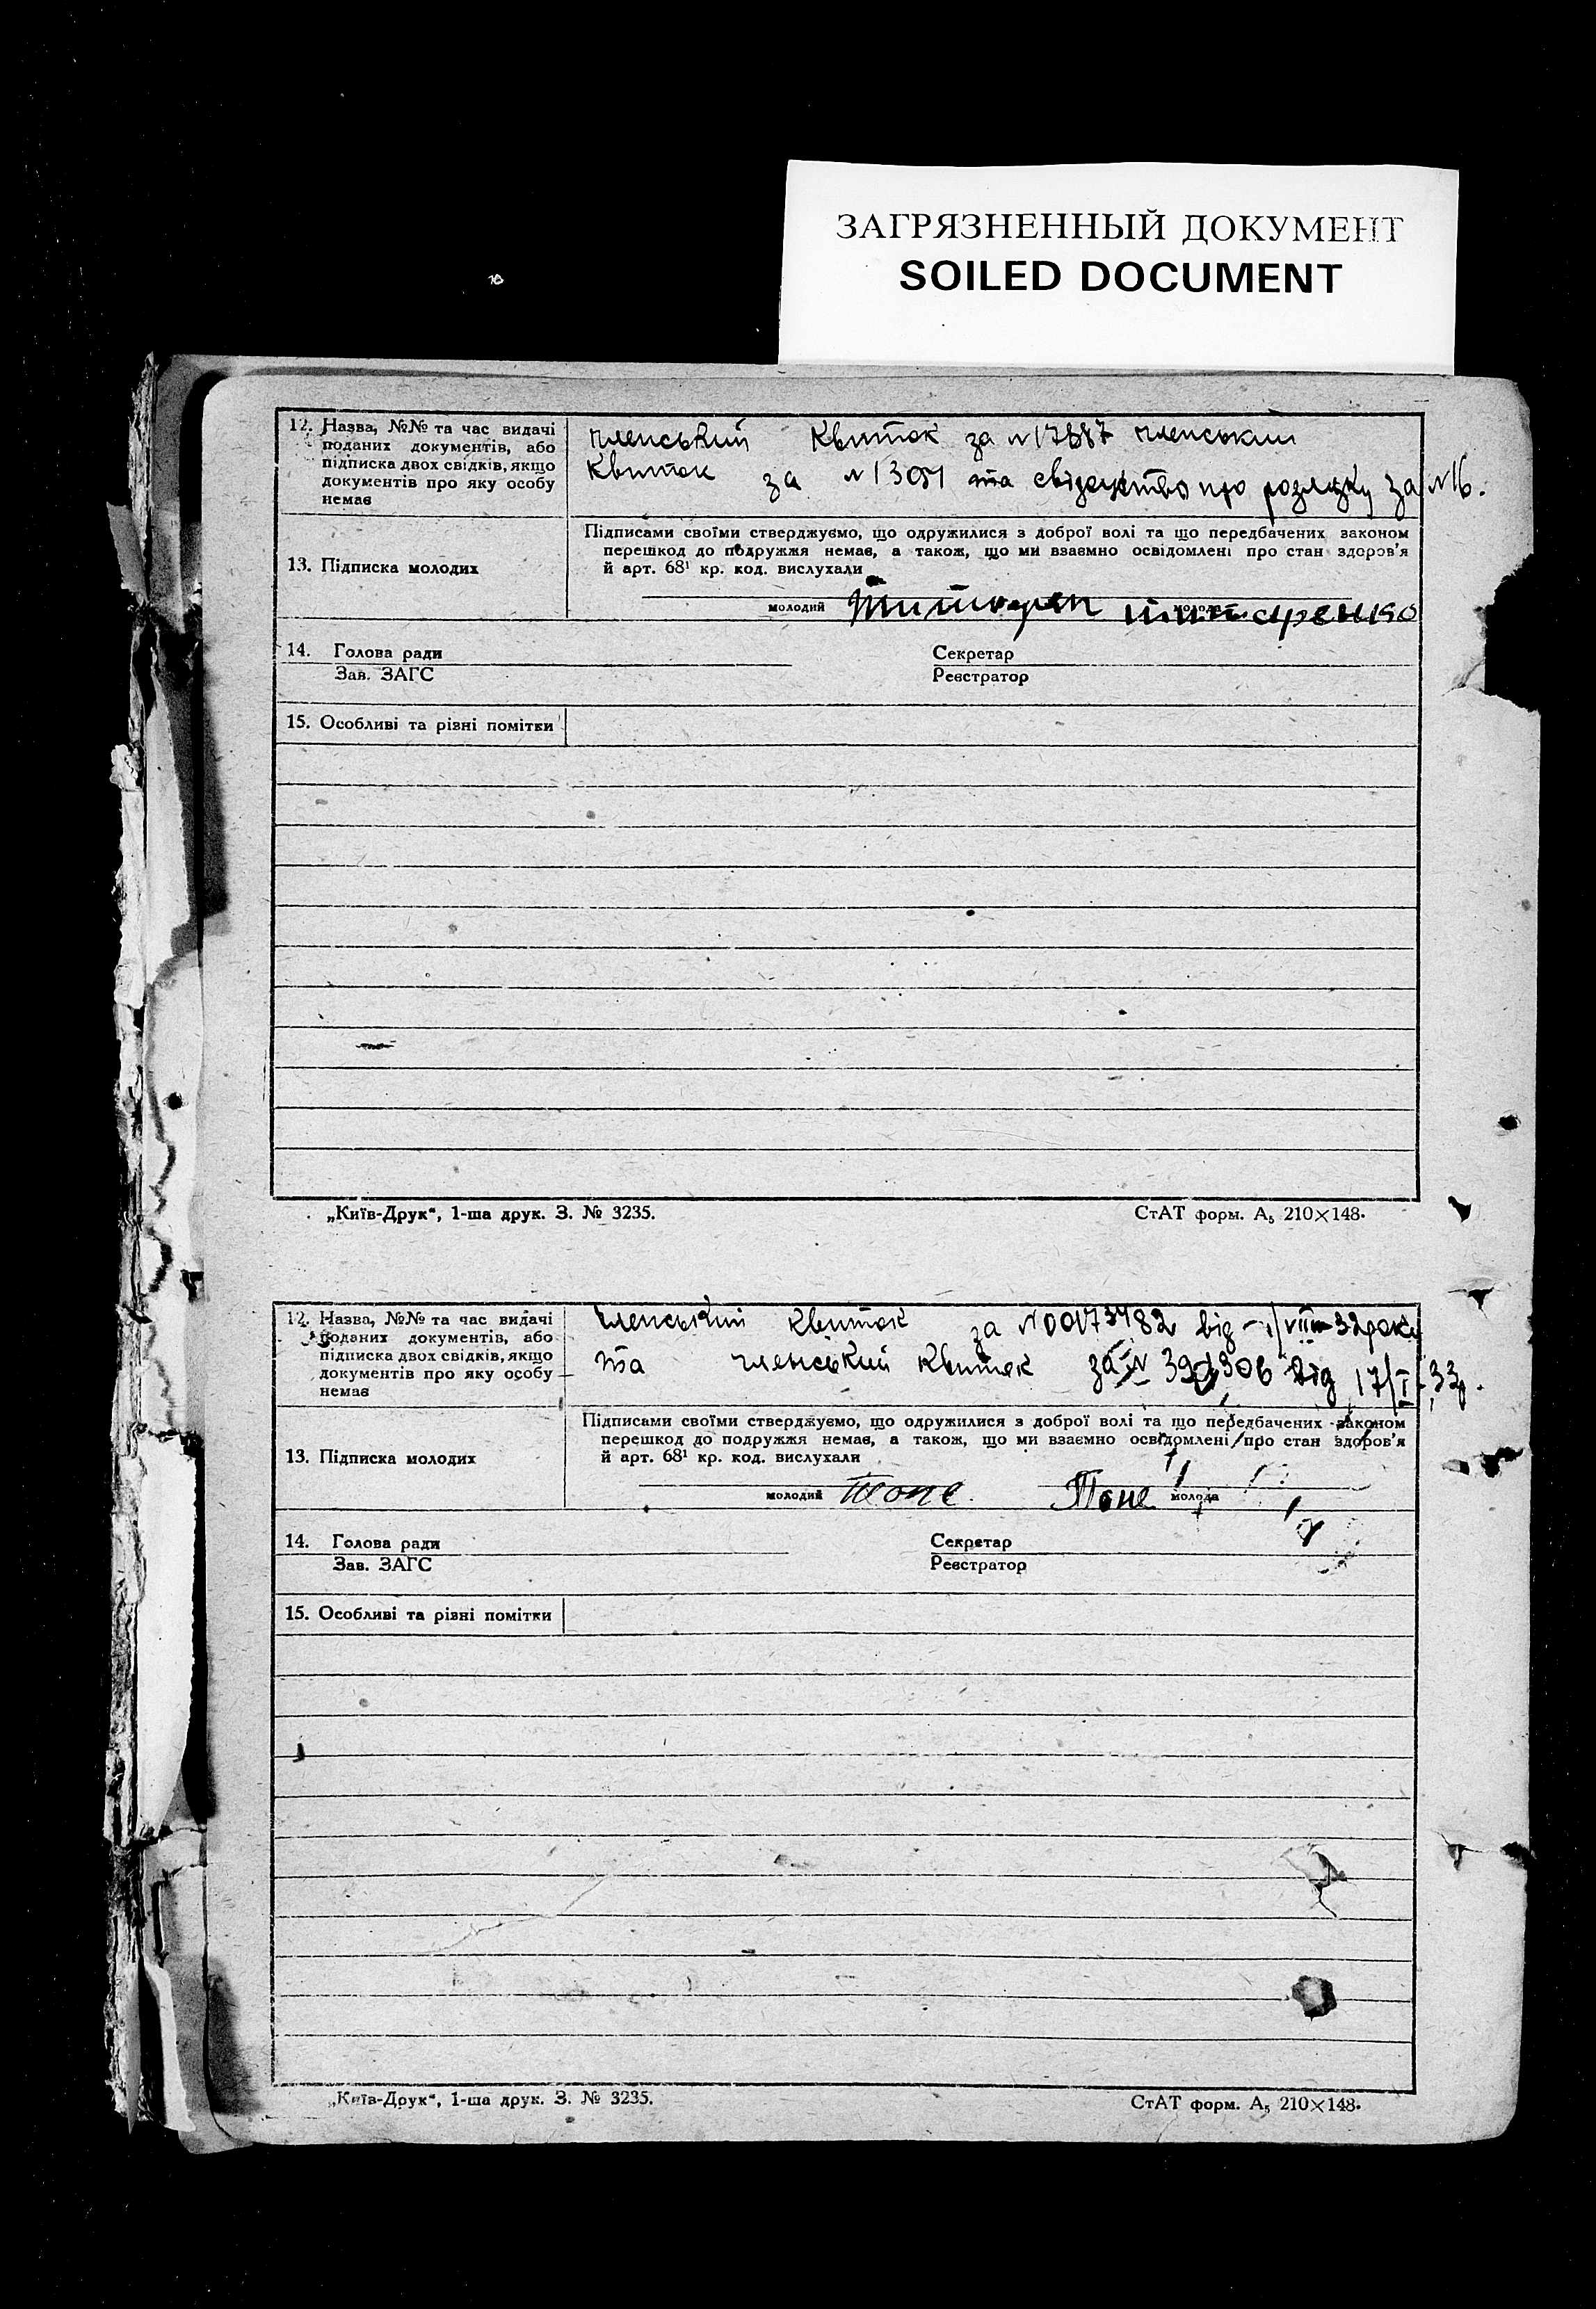 ЗАГРЯЗНЕННЫЙ ДОКУМЕНТ
SOILED DOCUMENT
12. Назва, №№ та час видачі
поданих документів, або
підписка двох свідків, якщо
документів про яку особу
немає
членський квиток за №17887 членський
квиток за №13051 та свідоцтво про розлуку за №16.
13. Підписка молодих
Підписами своїми стверджуємо, що одружилися з доброї волі та що передбачених законом
перешкод до подружжя немає, а також, що ми взаємно освідомлені про стан здоров'я
й арт. 68¹ кр. код. вислухали
молодий
14. Голова ради
Зав. ЗАГС
Секретар
Реєстратор
15. Особливі та різні помітки
„Київ-Друк“, 1-ша друк. З. № 3235.
СтАТ форм. А₅ 210×148.
12. Назва, №№ та час видачі
поданих документів, або
підписка двох свідків, якщо
документів про яку особу
немає
членський квиток за № від 1/VIII-32 року
та членський квиток за № від 17/I-33р.
13. Підписка молодих
Підписами своїми стверджуємо, що одружилися з доброї волі та що передбачених законом
перешкод до подружжя немає, а також, що ми взаємно освідомлені про стан здоров'я
й арт. 68¹ кр. код. вислухали
молодий молода
14. Голова ради
Зав. ЗАГС
Секретар
Реєстратор
15. Особливі та різні помітки
„Київ-Друк“, 1-ша друк. З. № 3235.
СтАТ форм. А₅ 210×148.